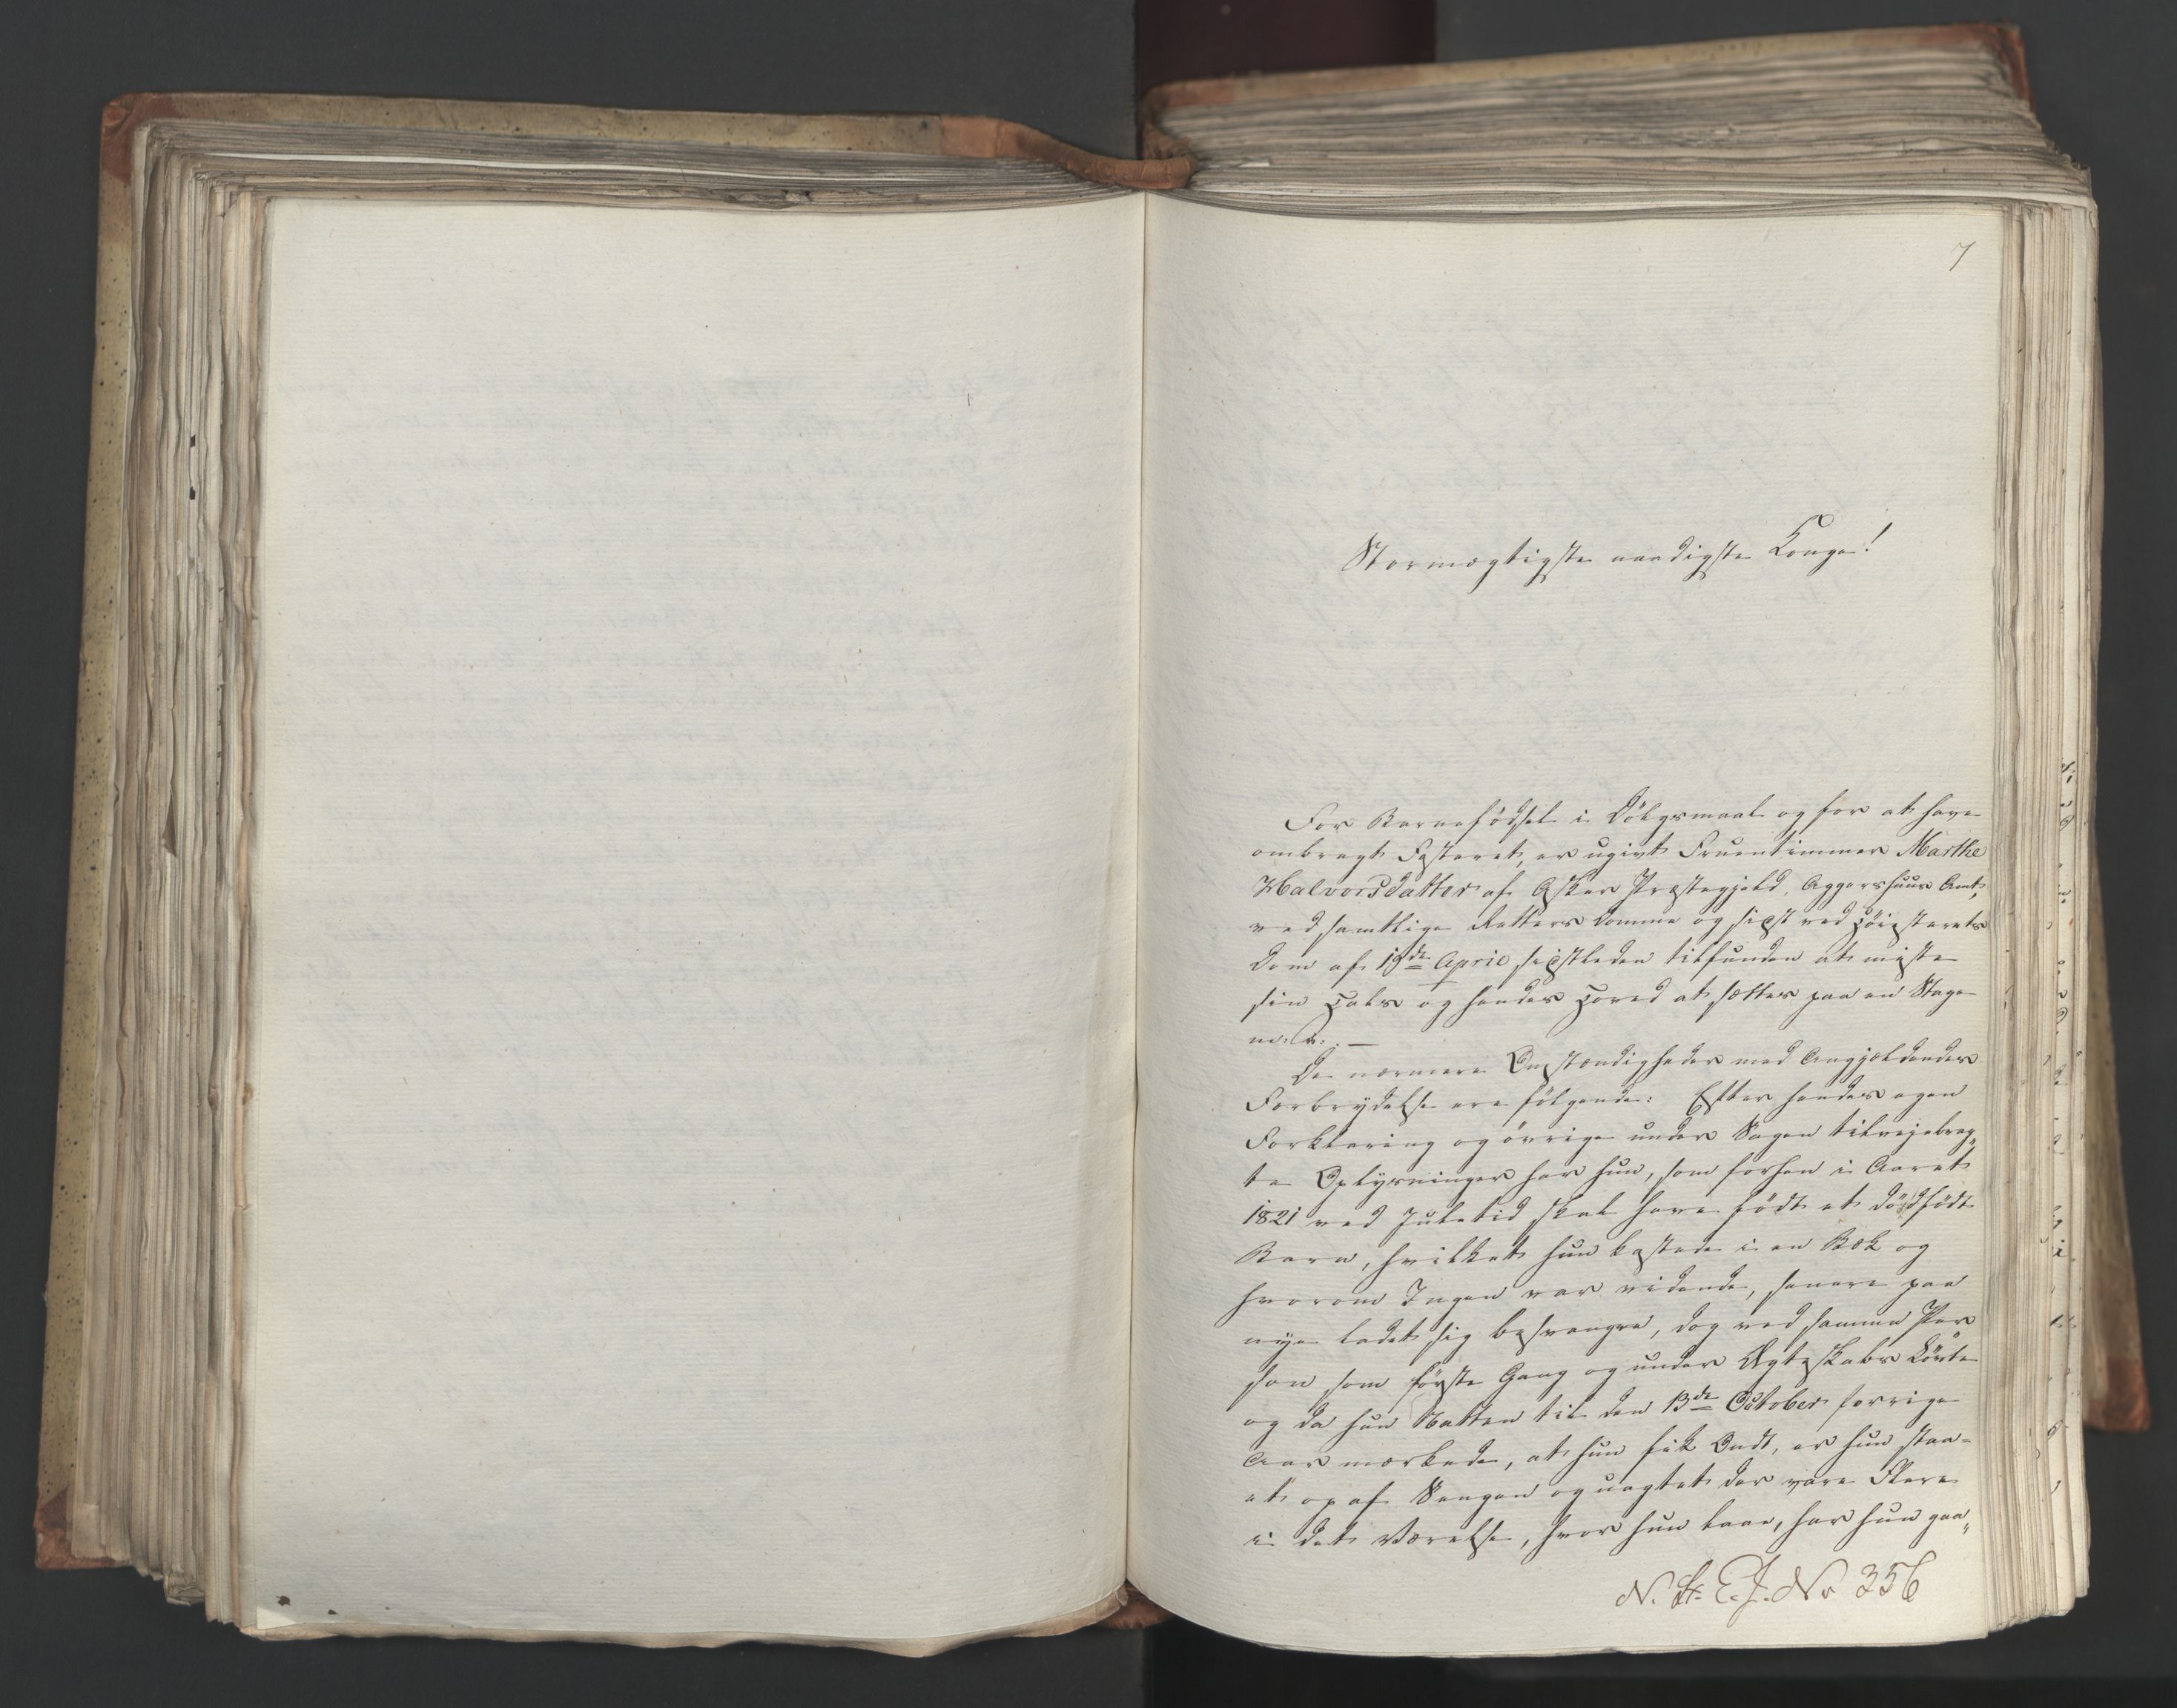 7
Stormægtigste naadigste Konge!
For Barnefødsel i Dølgsmaal og for at have
ombragt Fosteret, er ugivt Fruentimmer Marthe
Halvorsdatter af Asker Præstegjeld, Aggershuus Amt,
ved samtlige Retters Domme og sidst ved Høiesterets
Dom af 19de April sidstleden tilfunden at miste
sin Hals og hendes Hoved at sættes paa en Stage
m: v: . —
De nærmere Omstændigheder med Angjældendes
Forbrydelse ere følgende: Efter hendes egen
Forklaring og øvrige under Sagen tilvejebrag„
te Oplysninger har hun, som forhen i Aaret
1821 ved Juletid skal have født et dødfødt
Barn, hvilket hun kastede i en Bæk og
hvorom Ingen var vidende, senere paa
nye ladet sig besvangre, dog ved samme Per
son som første Gang og under Ægteskabs Løvte
og da hun Natten til den 13de October forrige
Aar mærkede, at hun fik Ondt, er hun staa-
et op af Sengen og uagtet der vare Flere
i det Værelse, hvor hun laae, har hun gaa„
N. St. E. J. No 356